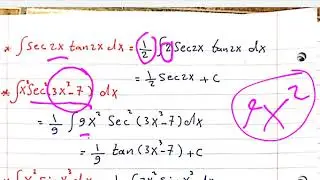 * ∫ sec2x tan2x dx = 1/2 ∫ 2 sec2x tan2x dx
= 1/2 sec2x + c
* ∫ x² sec²(3x³-7) dx 9x²
= 1/9 ∫ 9x² Sec²(3x³-7) dx
= 1/9 tan(3x³-7) + c